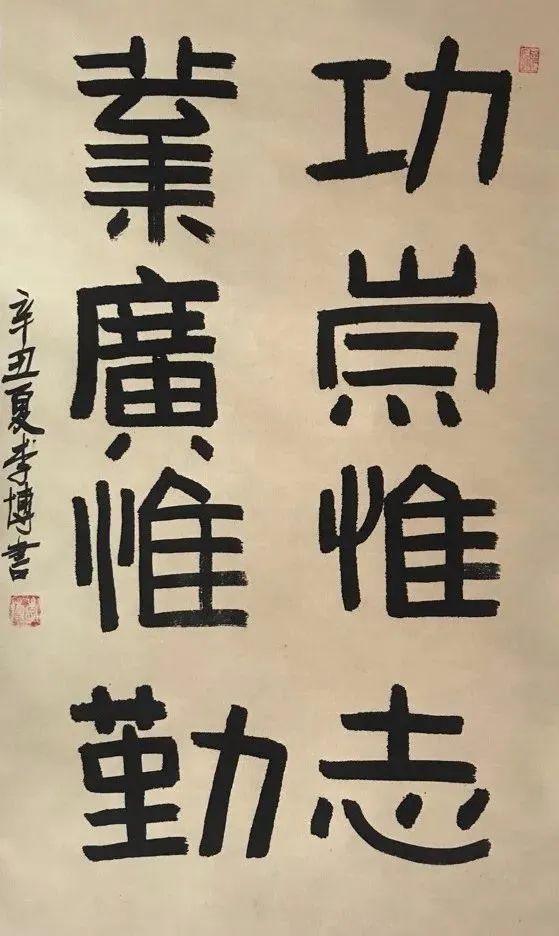 功崇惟志
業廣惟勤
辛丑夏李博書